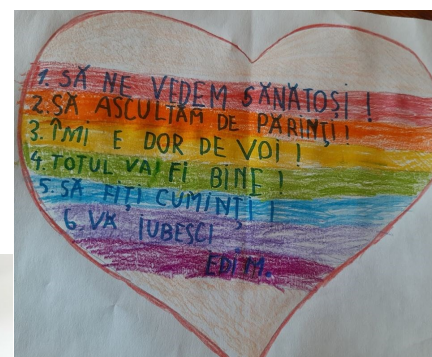 1. SĂ NE VEDEM SĂNĂTOȘI !
2. SĂ ASCULTĂM DE PĂRINȚI!
3. ÎMI E DOR DE VOI !
4. TOTUL VA FI BINE !
5. SĂ FIȚI CUMINȚI !
6. VĂ IUBESC!
EDI M.